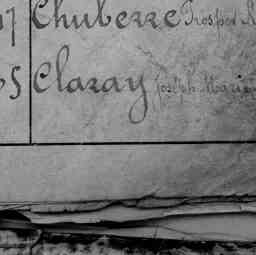 7 Chuberre Prosper
5 Claray Joseph Marie